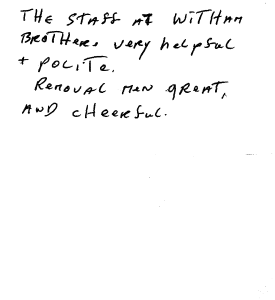 THE STAFF AT WITHAM
BROTHERS very helpful
+ POLITE.
REMOVAL MEN GREAT,
AND CHEERFUL.